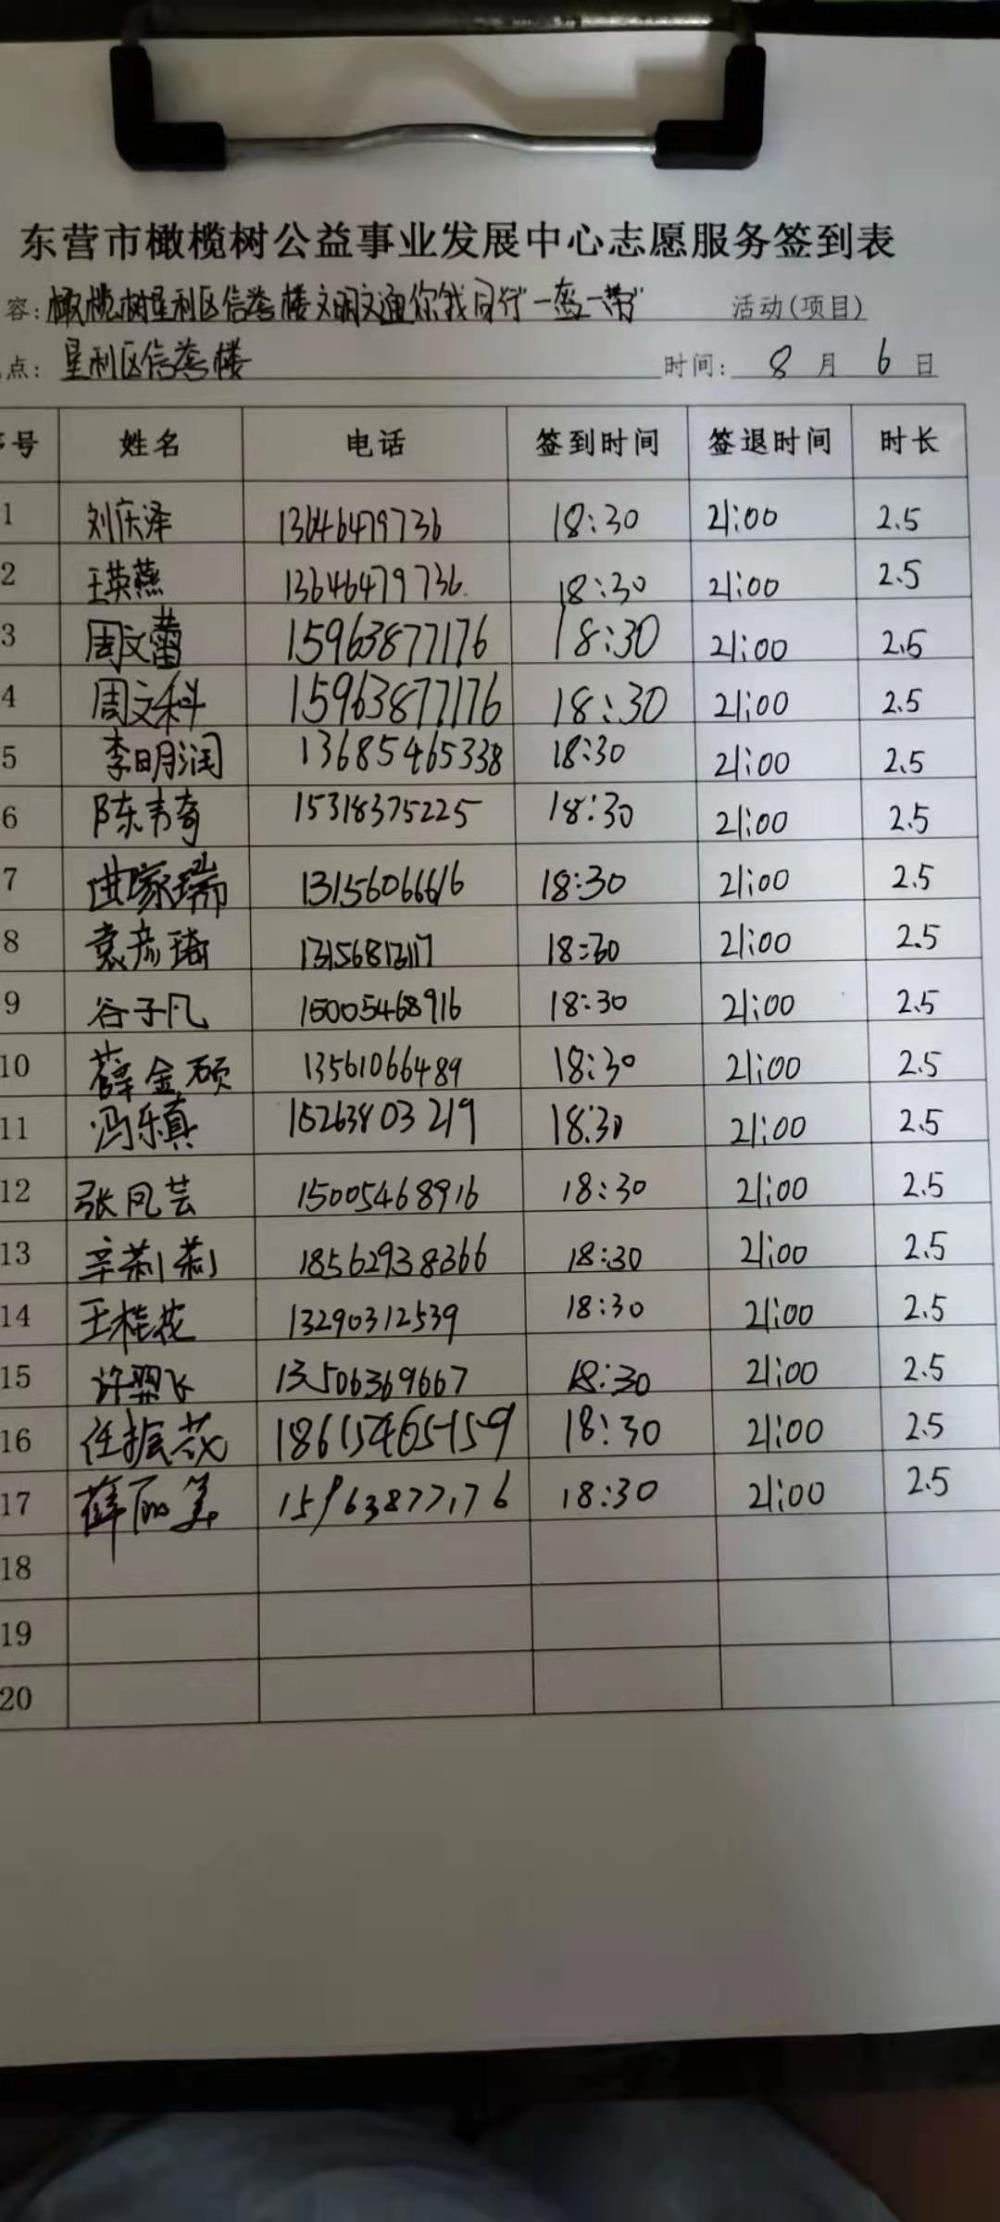 东营市橄榄树公益事业发展中心志愿服务签到表
容: 橄榄树垦利区信誉楼文明交通你我同行"一盔一带" 活动(项目)
点: 垦利区信誉楼 时间: 8 月 6 日
号 姓名 电话 签到时间 签退时间 时长
1 刘庆泽 13646479736 18:30 21:00 2.5
2 王英燕 13646479736 18:30 21:00 2.5
3 周文蕾 15963877176 18:30 21:00 2.5
4 周文科 15963877176 18:30 21:00 2.5
5 李明润 13685465338 18:30 21:00 2.5
6 陈韦奇 15318375225 18:30 21:00 2.5
7 曲家瑞 13156066616 18:30 21:00 2.5
8 袁彦琦 18:30 21:00 2.5
9 谷子凡 15005468916 18:30 21:00 2.5
10 薛金硕 13561066489 18:30 21:00 2.5
11 冯乐真 15263803219 18:30 21:00 2.5
12 张凤芸 15005468916 18:30 21:00 2.5
13 辛莉莉 18562938366 18:30 21:00 2.5
14 王桂花 13290312539 18:30 21:00 2.5
15 许翠飞 13506369667 18:30 21:00 2.5
16 任振花 18615465159 18:30 21:00 2.5
17 薛丽美 15963877176 18:30 21:00 2.5
18
19
20